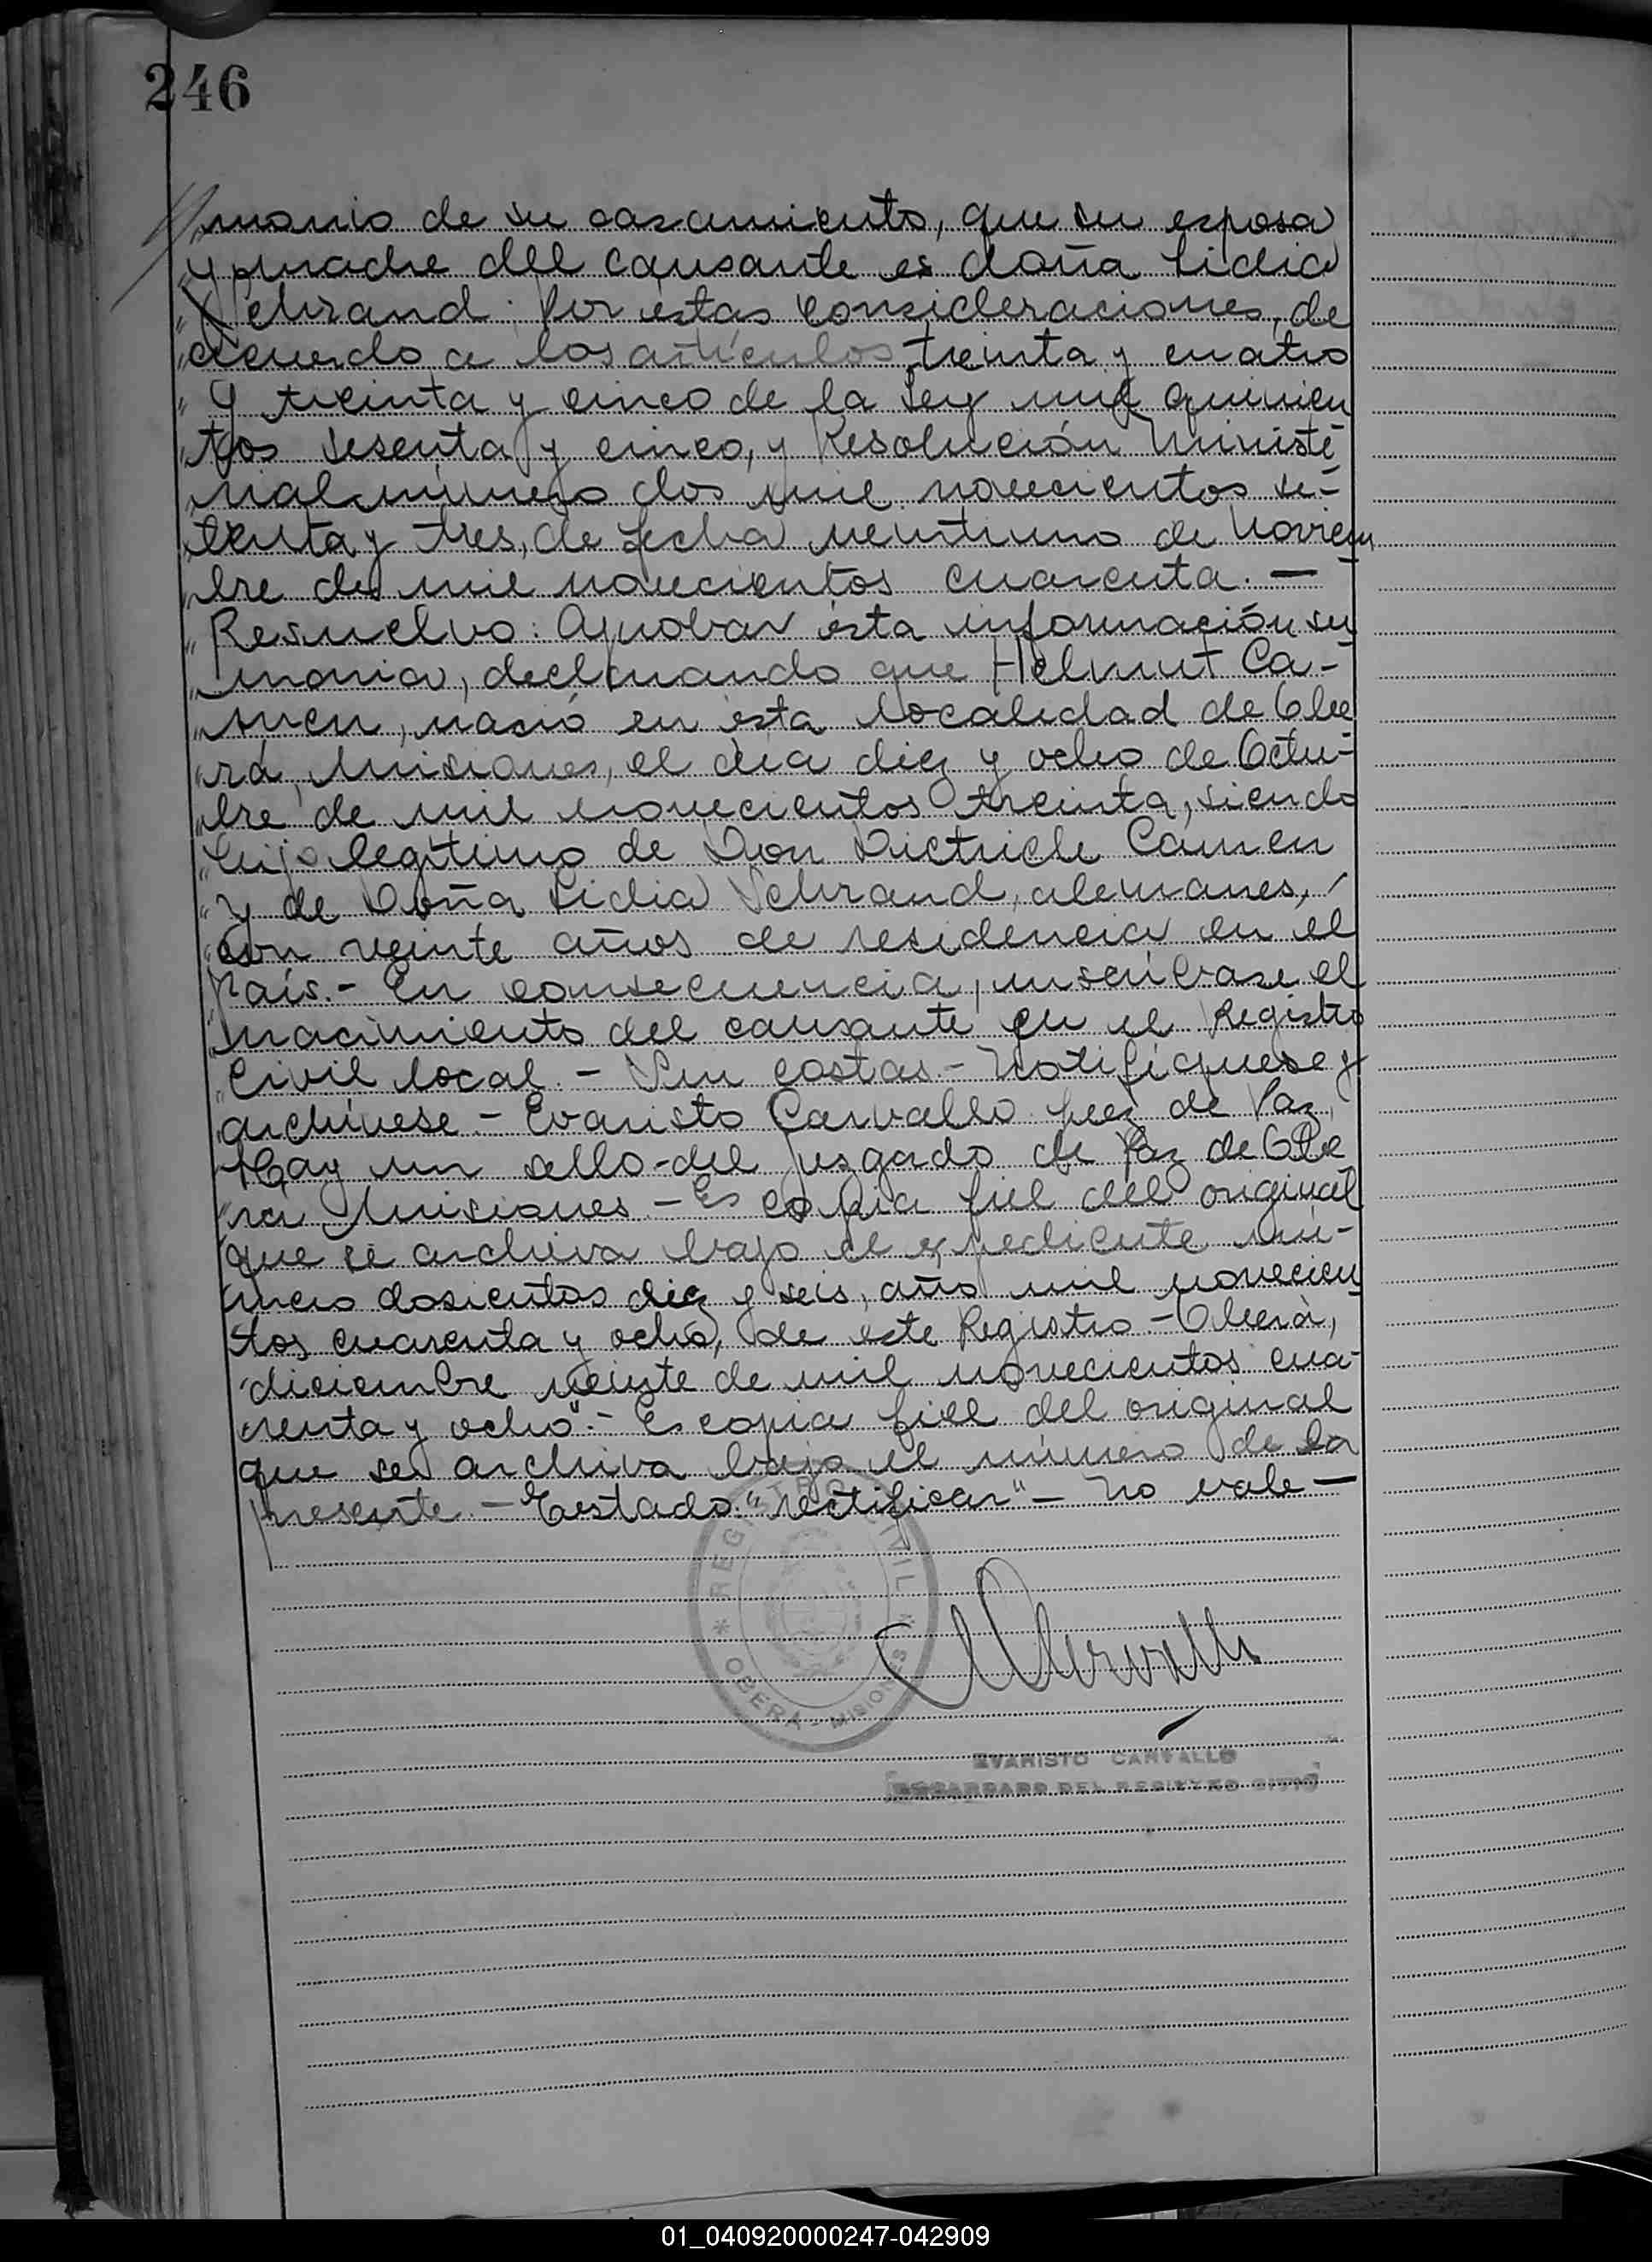 246
"monio de su casamiento, que su esposa
"y madre del causante es doña Lidia
"Schrand; Por estas consideraciones, de
"acuerdo a los artículos treinta y cuatro
"y treinta y cinco de la Ley mil quinien
"tos sesenta y cinco, y Resolución Ministe-
"rial número dos mil novecientos se-
"tenta y tres, de fecha veintiuno de Noviem
"bre de mil novecientos cuarenta. —
"Resuelvo: Aprobar ésta información su
"maria, declarando que Helmut Ca-
"men, nació en ésta localidad de Obe
"rá, Misiones, el dia diez y ocho de Octu-
"bre de mil novecientos treinta, siendo
"hijo legítimo de Don Dietrich Camen
"y de Doña Lidia Schrand, alemanes,
"con veinte años de residencia en el
"País.- En consecuencia, inscríbase el
"nacimiento del causante en el Registro
"Civil local.- Sin costas.- Notifíquese y
"archívese.- Evaristo Carvallo Juez de Paz,
"Hay un sello-del Juzgado de Paz de Obe
"rá Misiones - Es copia fiel del original
"que se archiva bajo el expediente nú-
"mero dosientos diez y seis, año mil novecien
"tos cuarenta y ocho, de este Registro - Oberá,
"diciembre veinte de mil novecientos cua-
renta y ocho".- Es copia fiel del original
que se archiva bajo el número de la
presente.- Testado "rectificar" - No vale —
REGISTRO CIVIL
* OBERA - MISIONES *
EVARISTO CARVALLO
ENCARGADO DEL REGISTRO CIVIL
01_040920000247-042909